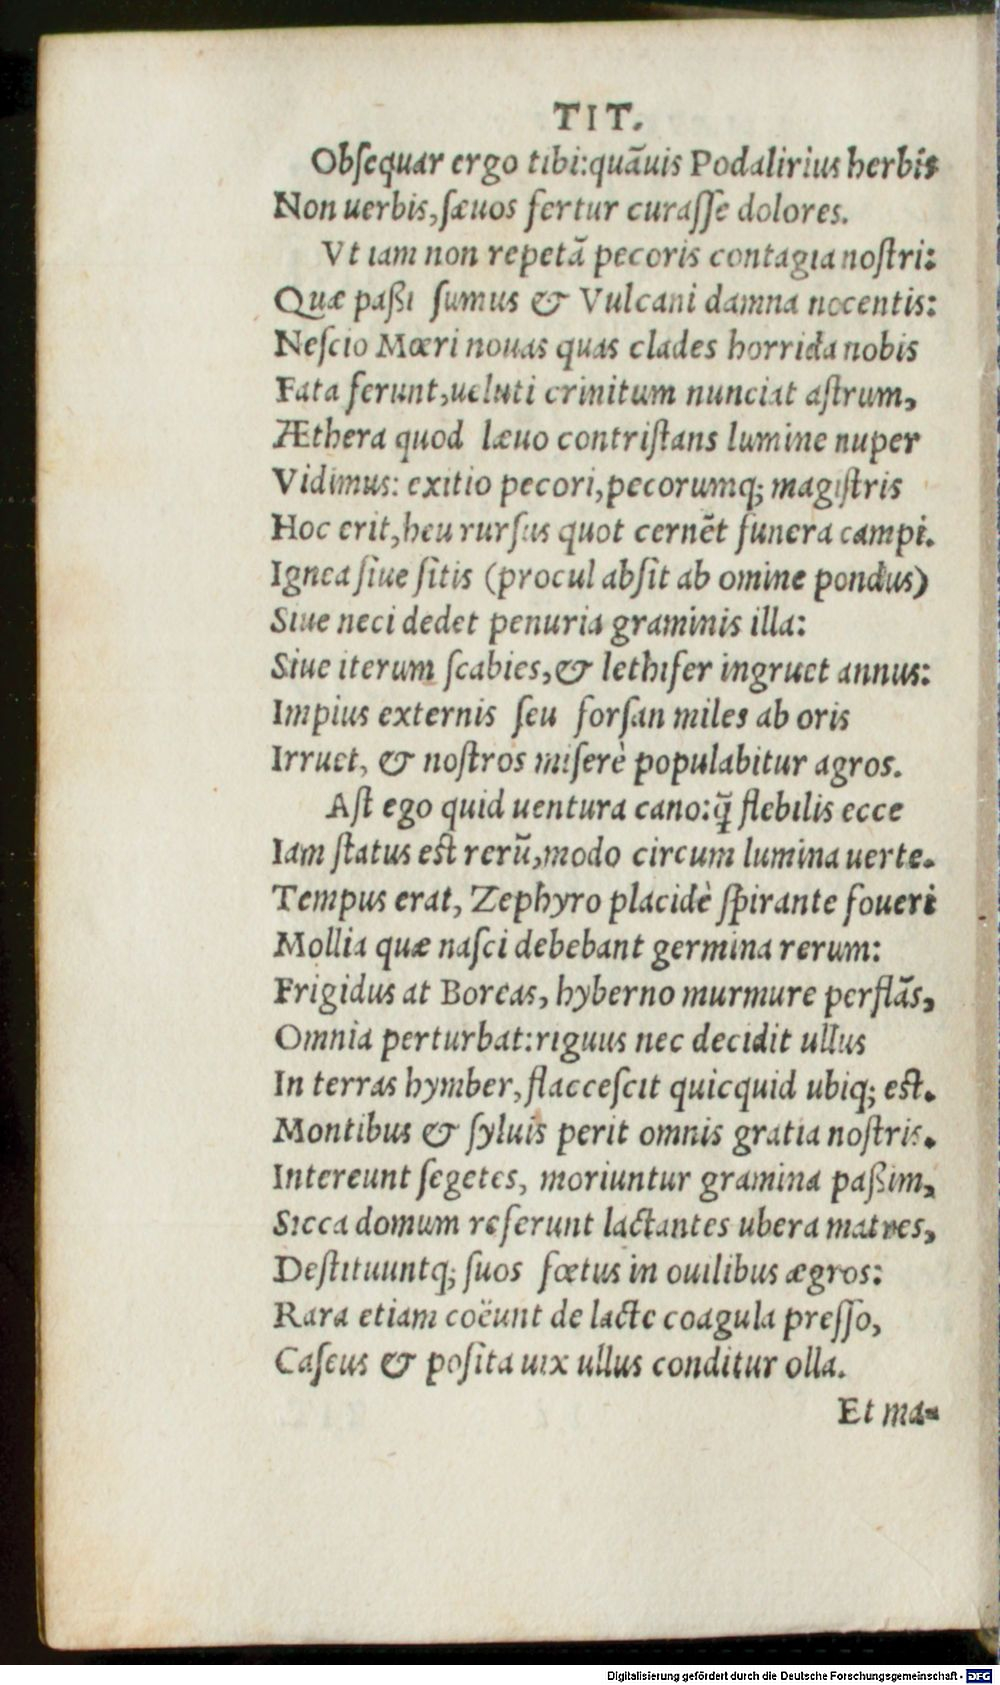 TIT.
Obſequar ergo tibi:quãuis Podalirius herbis
Non uerbis,ſæuos fertur curaſſe dolores.
Vt iam non repetã pecoris contagia noſtri:
Quæ paßi ſumus & Vulcani damna nocentis:
Neſcio Mœri nouas quas clades horrida nobis
Fata ferunt,ueluti crinitum nunciat aſtrum,
Æthera quod læuo contriſtans lumine nuper
Vidimus: exitio pecori,pecorumq; magiſtris
Hoc erit,heu rurſus quot cernẽt funera campi.
Ignea ſiue ſitis (procul abſit ab omine pondus)
Siue neci dedet penuria graminis illa:
Siue iterum ſcabies,& lethifer ingruet annus:
Impius externis ſeu forſan miles ab oris
Irruet, & noſtros miſerè populabitur agros.
Aſt ego quid uentura cano:q̃ flebilis ecce
Iam ſtatus eſt rerũ,modo circum lumina uerte.
Tempus erat, Zephyro placidè ſpirante foueri
Mollia quæ naſci debebant germina rerum:
Frigidus at Boreas, hyberno murmure perflãs,
Omnia perturbat:riguus nec decidit ullus
In terras hymber, flacceſcit quicquid ubiq; eſt.
Montibus & ſyluis perit omnis gratia noſtris.
Intereunt ſegetes, moriuntur gramina paßim,
Sicca domum referunt lactantes ubera matres,
Deſtituuntq; ſuos fœtus in ouilibus ægros:
Rara etiam coëunt de lacte coagula preſſo,
Caſeus & poſita uix ullus conditur olla.
Et ma-
Digitalisierung gefördert durch die Deutsche Forschungsgemeinschaft - DFG